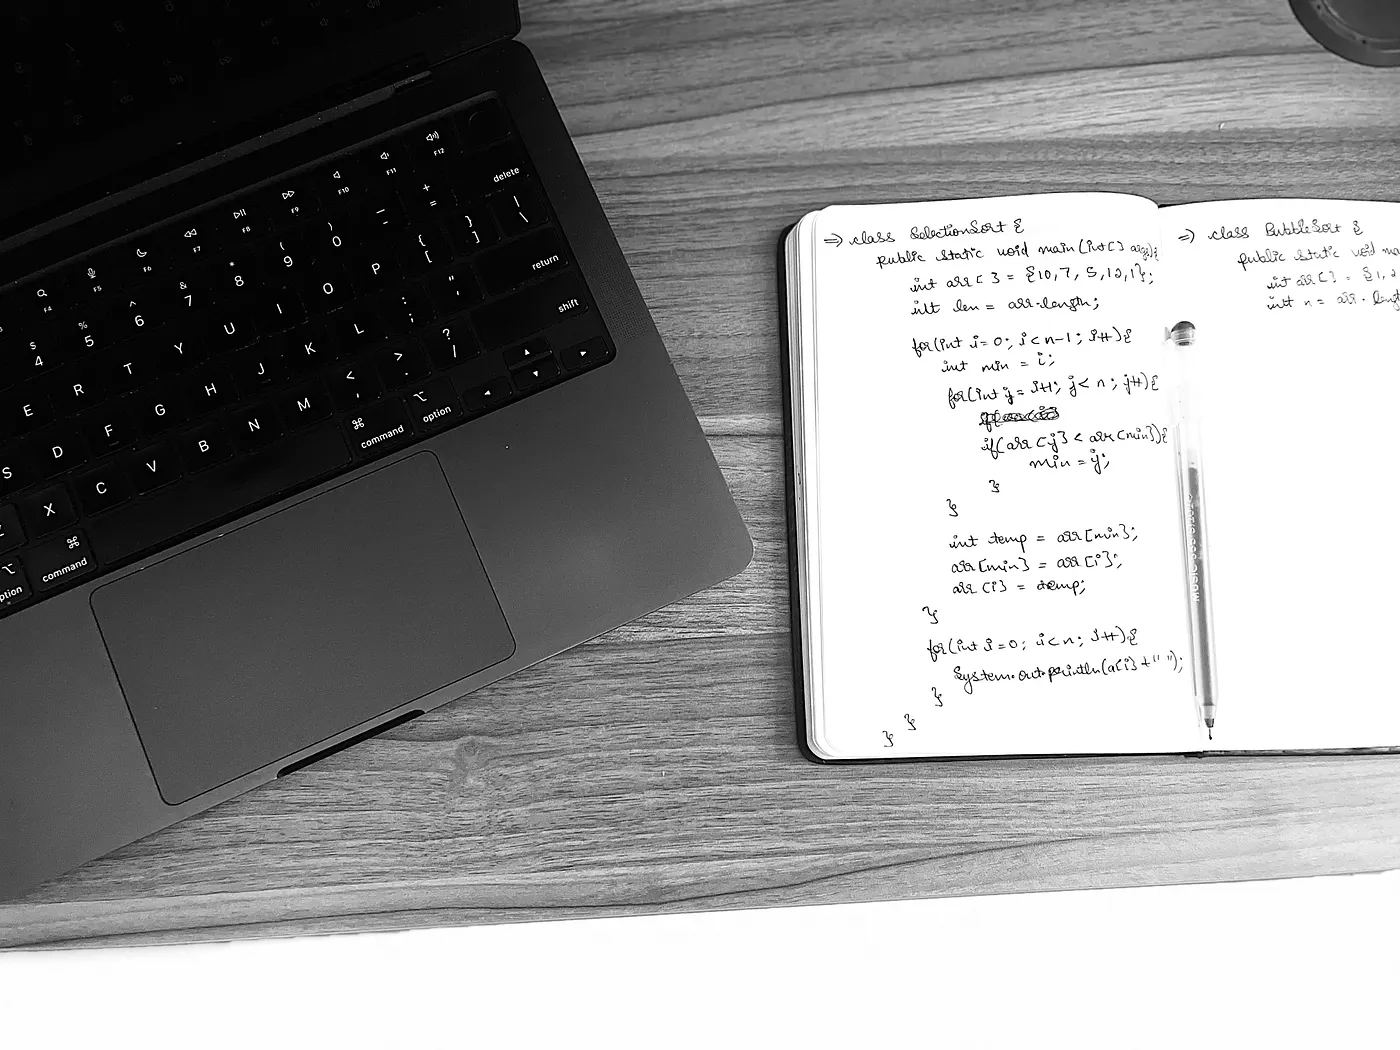 F4
F5
F6
F7
F8
F9
F10
F11
F12
$
4
%
5
^
6
&
7
*
8
(
9
)
0
—
-
+
=
delete
E
R
T
Y
U
I
O
P
{
[
}
]
|
\
S
D
F
G
H
J
K
L
:
;
"
'
return
Z
X
C
V
B
N
M
<
,
>
.
?
/
shift
option
command
command
option
⇒ class SelectionSort {
public static void main(int[] args){
int arr[] = {10,7,5,12,1};
int len = arr.length;
for(int i=0; i<n-1; i++){
int min = i;
for(int j=i+1; j<n; j++){
if(arr[j] < arr[min]){
min = j;
}
}
int temp = arr[min];
arr[min] = arr[i];
arr[i] = temp;
}
for(int i=0; i<n; i++){
System.out.println(a[i]+" ");
}
}
}
⇒ class BubbleSort {
public static void ma
int arr[] = {1,2
int n = arr.leng